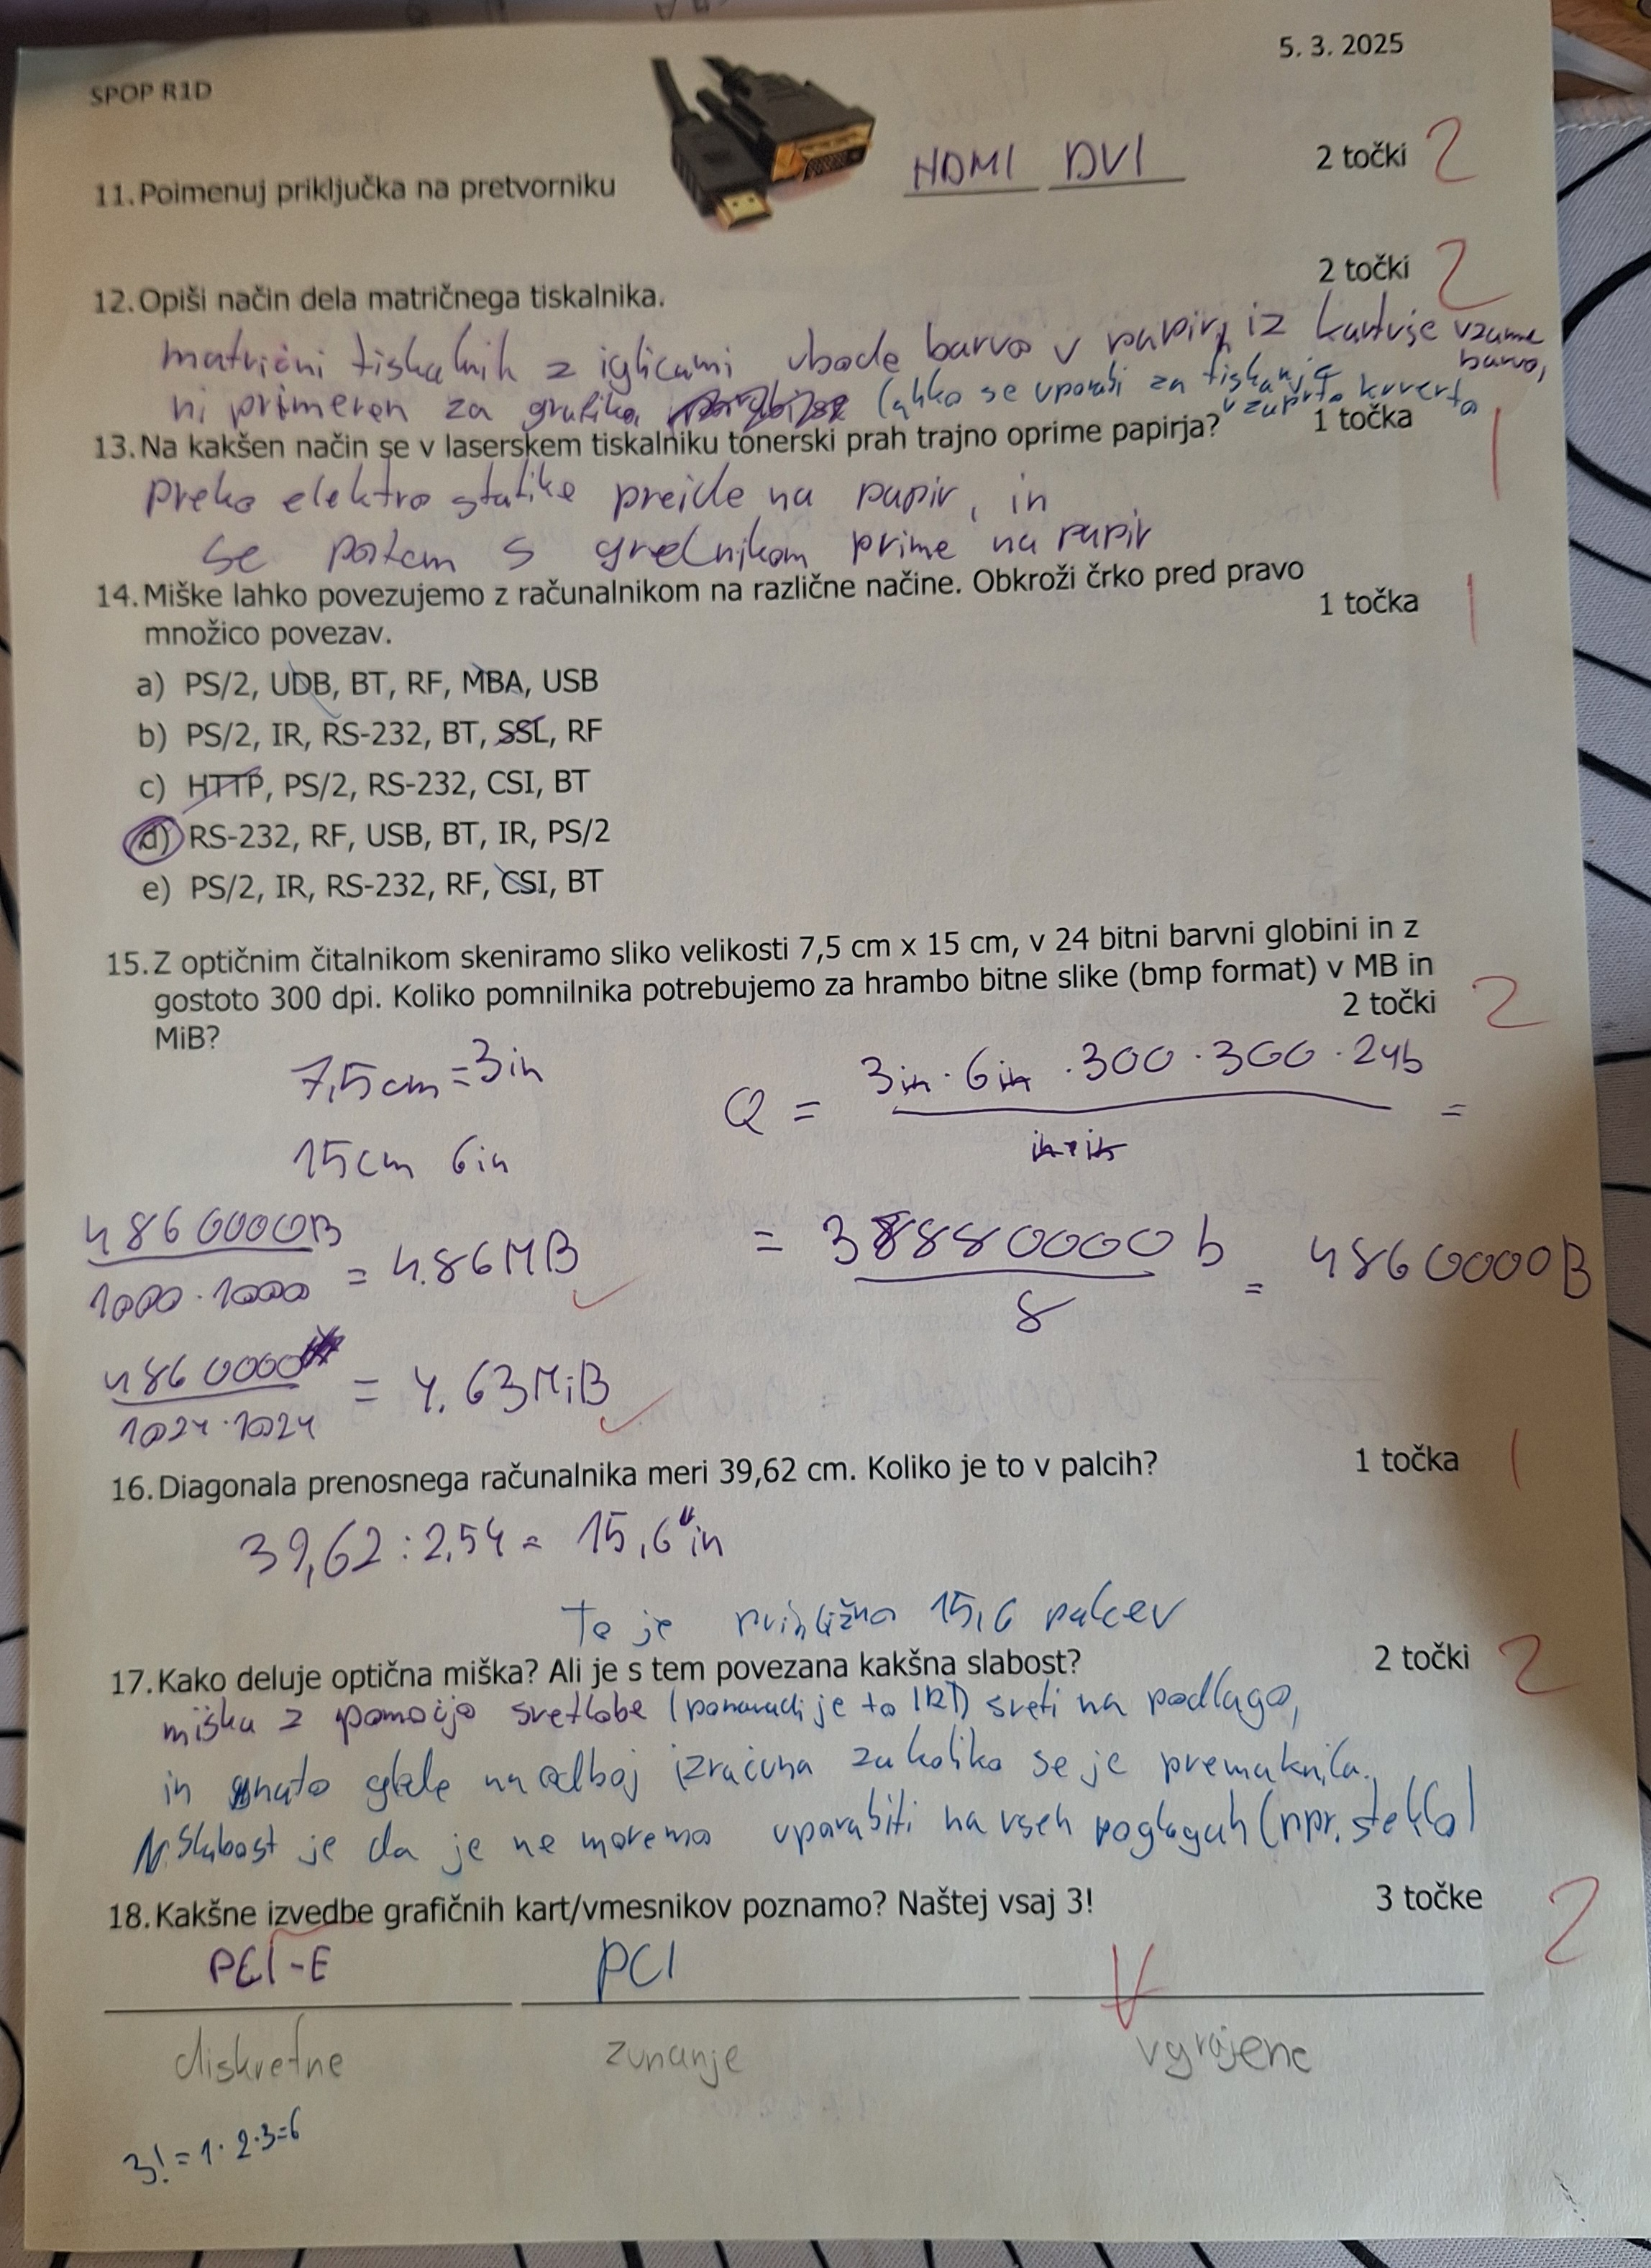 5. 3. 2025
SPOP R1D
11. Poimenuj priključka na pretvorniku HDMI DVI 2 točki 2
2 točki 2
12. Opiši način dela matričnega tiskalnika.
matrični tiskalnik z iglicami vbode barvo v papir, iz kartuše vzame barvo,
ni primeren za grafiko, lahko se uporabi za tiskanje v zaprto kuverto
13. Na kakšen način se v laserskem tiskalniku tonerski prah trajno oprime papirja? 1 točka 1
preko elektro statike preide na papir, in
se potem s grelnikom prime na papir
14. Miške lahko povezujemo z računalnikom na različne načine. Obkroži črko pred pravo
množico povezav. 1 točka 1
a) PS/2, UDB, BT, RF, MBA, USB
b) PS/2, IR, RS-232, BT, SSL, RF
c) HTTP, PS/2, RS-232, CSI, BT
d) RS-232, RF, USB, BT, IR, PS/2
e) PS/2, IR, RS-232, RF, CSI, BT
15. Z optičnim čitalnikom skeniramo sliko velikosti 7,5 cm x 15 cm, v 24 bitni barvni globini in z
gostoto 300 dpi. Koliko pomnilnika potrebujemo za hrambo bitne slike (bmp format) v MB in
MiB? 2 točki 2
7,5 cm = 3 in
15 cm 6 in
Q = 3in · 6in · 300 · 300 · 24b =
in · in
= 38880000 b = 4860000B
8
4860000B = 4.86MB
1000 · 1000
4860000 = 4.63MiB
1024 · 1024
16. Diagonala prenosnega računalnika meri 39,62 cm. Koliko je to v palcih? 1 točka 1
39,62 : 2,54 = 15,6" in
To je približno 15,6 palcev
17. Kako deluje optična miška? Ali je s tem povezana kakšna slabost? 2 točki 2
miška z pomočjo svetlobe (ponavadi je to IR) sveti na podlago,
in nato glede na odboj izračuna za koliko se je premaknila.
Slabost je da je ne moremo uporabiti na vseh poglogah (npr. steklo)
18. Kakšne izvedbe grafičnih kart/vmesnikov poznamo? Naštej vsaj 3! 3 točke 2
PCI-E PCI
diskretne zunanje vgrajene
3! = 1 · 2 · 3 = 6